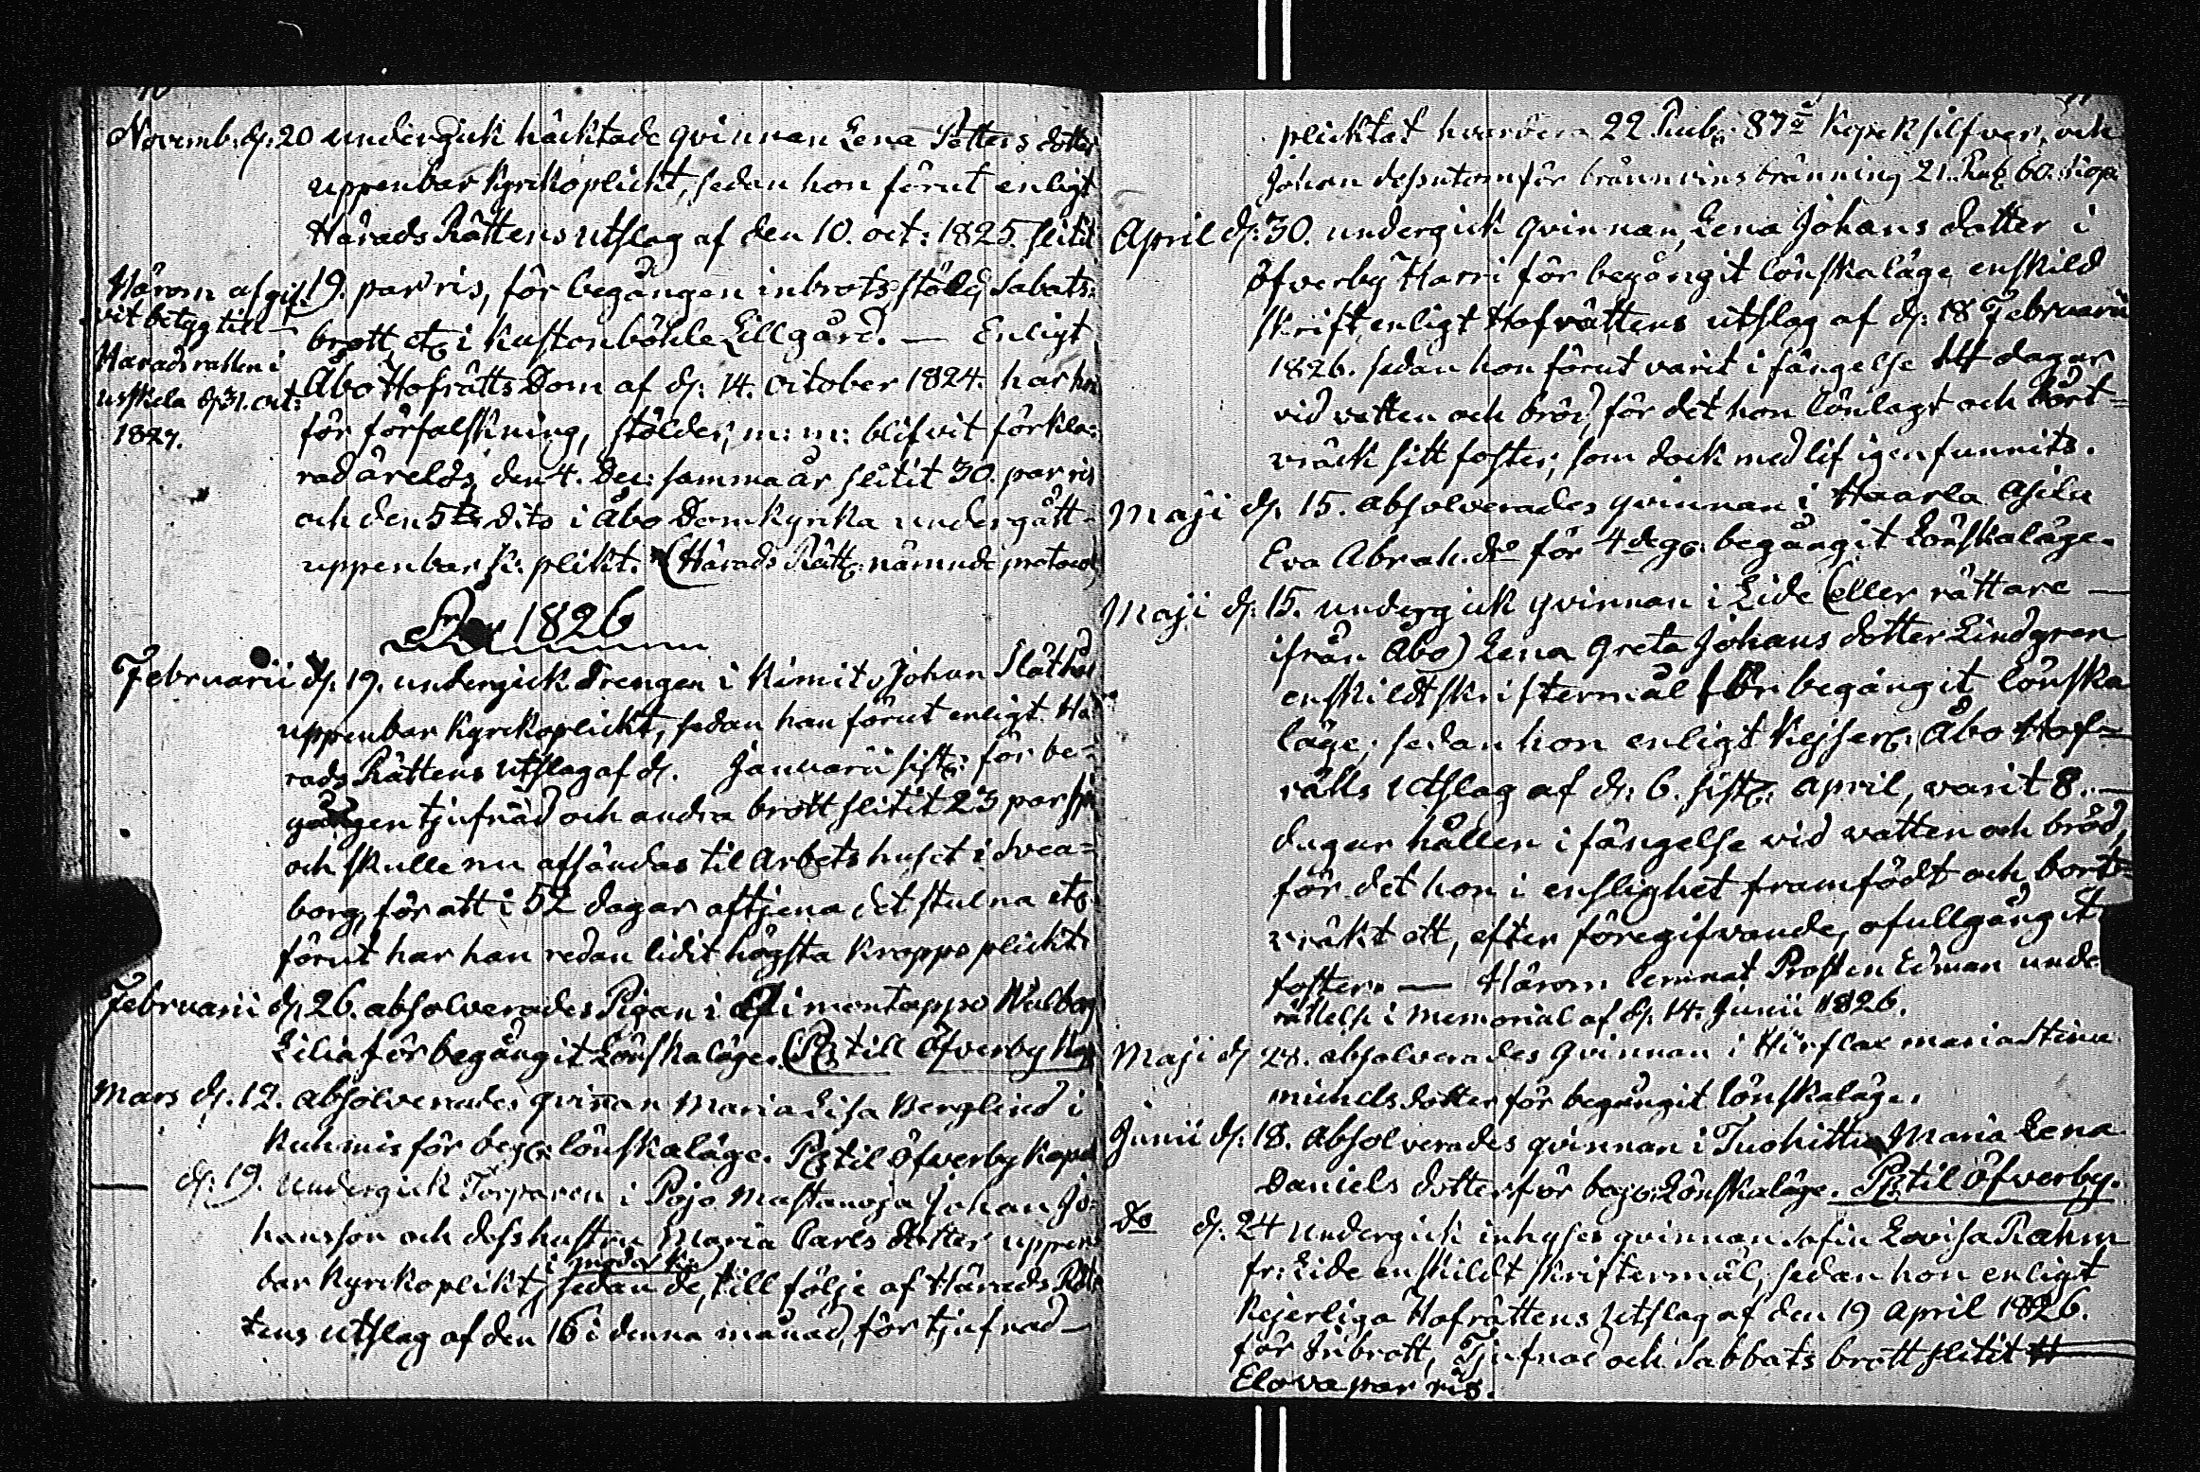 10
Novemb. d. 20 undergick häcktade qvinnan Lena Petters dotter
uppenbar kyrkoplickt, sedan hon förut enligt
Härads Rättens utslag af den 10. oct: 1825. slitit
19. par ris, för begången inbrots stöld, Sabats-
brott etc i Kustonböhle Lillgård. — Enligt
Åbo Hofrätts Dom af d. 14. October 1824. har hon
för förfalskning, stölder, m: m: blifvit förkla-
rad ärelös, den 4. Dec: samma år slitit 30. par ris
och den 5te dito i Åbo Domkyrka undergått
uppenbar k: plikt. (Härads Rätts nämnde protocol)
Härom afgif-
vit betyg till
Häradsrätten i
Uskela d. 31. oct:
1827.
År 1826
Februarii d. 19. undergick drengen i Kimito Johan Slåtho
uppenbar kyrkoplickt, sedan han förut enligt Hä-
rads Rättens utslag af d. Januarii sistl: för be-
gången tjufnad och andra brott slitit 23 par spö
och skulle nu afsändas til Arbetshuset i Svea-
borg, för att i 52 dagar aftjena det stulna etc.
förut har han redan lidit högsta kroppsplickt.
Februarii d. 26. absolverades Pigan i Simontappo Walborg
Lilia för begångit Lönskaläge. (Pst till Öfverby
Mars d. 12. absolverades qvinnan Maria Lisa Berglind i
Kuhmis för beg: lönskaläge. Pst til Öfverby Kapel
— d. 19. Undergick Torparen i Pojo Mastanoja Johan Jo-
hansson och dess hustru Maria Carls dotter uppen-
i moderk:
bar kyrkoplikt, sedan de, till följe af Härads Rät-
tens utslag af den 16 i denna månad, för tjufnad
11
plicktat hvardera 22 Rub: 87 2/7 kopek silfver, och
Johan dessutom för brännvins bränning 21. Rub 60. kop.
April d. 30. undergick qvinnan, Lena Johans dotter i
Öfverby Harri för begångit lönskaläge enskild
skrift, enligt Hofrättens utslag af d. 18 Februarii
1826. sedan hon förut varit i fängelse dagar
vid vatten och bröd, för det hon lönlagt och bort-
vräck sitt foster, som dock med lif igenfunnits.
Maji d. 15. absolverades qvinnan i Haarla Asila
Eva Abrah. dr för 4de g: begångit Lönskaläge.
Maji d. 15. undergick qvinnan i Lide (eller rättare —
ifrån Åbo) Lena Greta Johans dotter Lindgren
enskildt skriftermål för begångit lönska
läge, sedan hon enligt Kejserl: Åbo Hof-
rätts utslag af d: 6. sistl: April, varit 8. —
dagar hållen i fängelse vid vatten och bröd,
för det hon i enslighet framfödt och bort-
vräkt ett, efter föregifvande, ofullgångit
foster. — Härom lemnat Prosten Edman unde
rättelse i Memorial af d. 14. Junii 1826.
Maji d. 28. absolverades qvinnan i Hirslax Maria Stina
Michels dotter för begångit lönskaläge.
Junii d. 18. Absolverades qvinnan i Tuohittu Maria Lena
Daniels dotter för beg: Lönskaläge. Pst til Öfverby.
Do d. 24 undergick inhyses qvinnan Sofia Lovisa Rahm
fr: Lide enskildt skriftermål, sedan hon enligt
Kejserliga Hofrättens Utslag af den 19 April 1826.
för Inbrott, Tjufnad och Sabbats brott, slitit
Elova par ris.